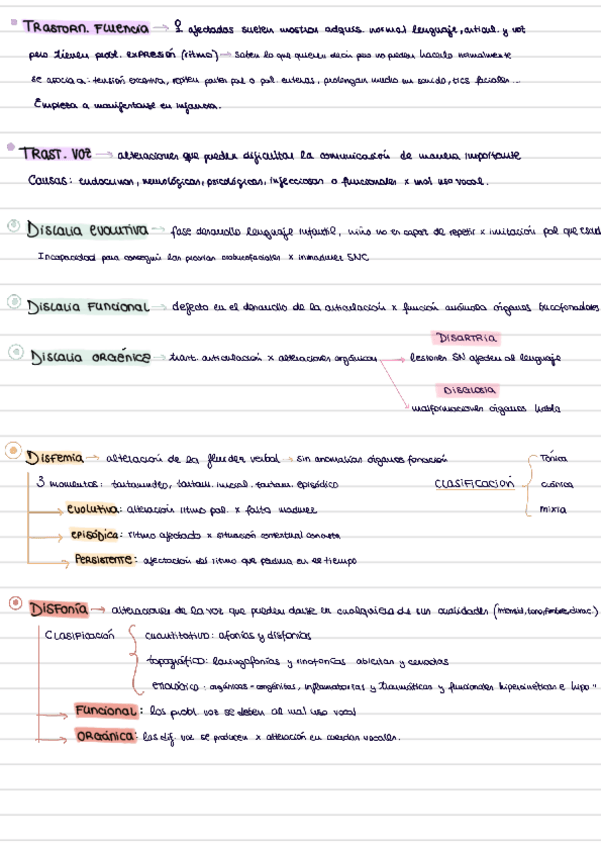 TRASTORN. FLUENCIA → afectadas suelen mostrar adquis. normal lenguaje, articul. y voz
pero tienen probl. EXPRESIÓN (ritmo) → saben lo que quieren decir pero no pueden hacerlo normalmente
se asocia a: tensión excesiva, repiten partes pal o pal. enteras, prolongan mucho un sonido, tics faciales...
Empieza a manifestarse en infancia.
TRAST. VOZ → alteraciones que pueden dificultar la comunicación de manera importante
Causas: endocrinas, neurológicas, psicológicas, infecciosas o funcionales x mal uso vocal.
DISLALIA EVOLUTIVA → fase desarrollo lenguaje infantil, niño no es capaz de repetir x imitación pal que
Incapacidad para conseguir las praxias orobucofaciales x inmadurez SNC
DISLALIA FUNCIONAL → defecto en el desarrollo de la articulación x función anómala órganos bucofonadores
DISARTRIA
DISLALIA ORGÁNICA → trast. articulación x alteraciones orgánicas → lesiones SN afecten al lenguaje
DISGLOSIA
malformaciones órganos habla
DISFEMIA → alteración de la fluidez verbal → sin anomalías órganos fonación
Tónica
3 momentos: tartamudeo, tartam. inicial, tartam. episódico CLASIFICACIÓN clónica
EVOLUTIVA: alteración ritmo pal. x falta madurez mixta
EPISÓDICA: ritmo afectado x situación contextual concreta
PERSISTENTE: afectación del ritmo que perdura en el tiempo
DISFONÍA → alteraciones de la voz que pueden darse en cualquiera de sus cualidades (intensid, tono, timbre, durac.)
CLASIFICACIÓN cuantitativo: afonías y disfonías
topográfico: laringofonías y rinofonías abiertas y cerradas
etiológico: orgánicas-congénitas, inflamatorias y traumáticas y funcionales hipercinéticas e hipo "
FUNCIONAL: los probl. voz se deben al mal uso vocal
ORGÁNICA: las dif. voz se producen x alteración en cuerdas vocales.